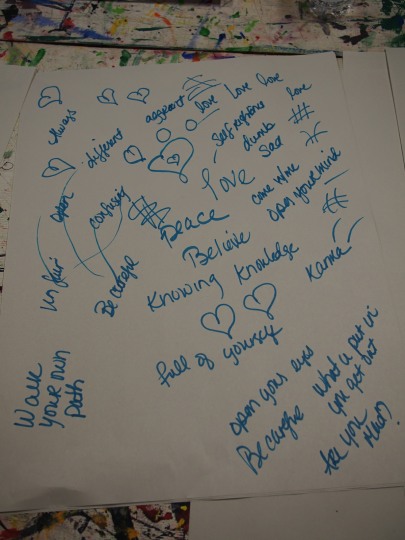 Always
different
aggressive
love love love
Self righteous love
dumb
Sad
open
confusing
love
come w/me
open your mind
Peace
Believe
unfair
Be careful
Knowing Knowledge
Karma
full of yourself
Walk
your own
path
open your eyes
Be careful
what u put in
you get out
tell you